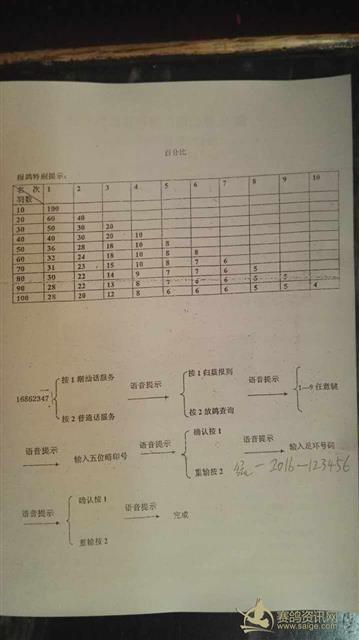 百分比
报鸽特别提示:
名次 羽数 1 2 3 4 5 6 7 8 9 10
10 100
20 60 40
30 50 30 20
40 40 30 20 10
50 36 28 18 10 8
60 32 24 18 10 8 8
70 31 23 15 10 8 7 6
80 30 22 14 9 7 7 6 5
90 28 22 13 8 7 6 6 5 5
100 28 20 12 8 6 6 6 5 5 4
16862347 按1潮汕话服务 语音提示 按1归巢报到 语音提示 1—9任意键
按2普通话服务 按2放鸽查询
语音提示 输入五位暗印号 语音提示 确认按1 语音提示 输入足环号码
重输按2 -2016-123456
语音提示 确认按1 语音提示 完成
重输按2
赛鸽资讯网
www.saige.com